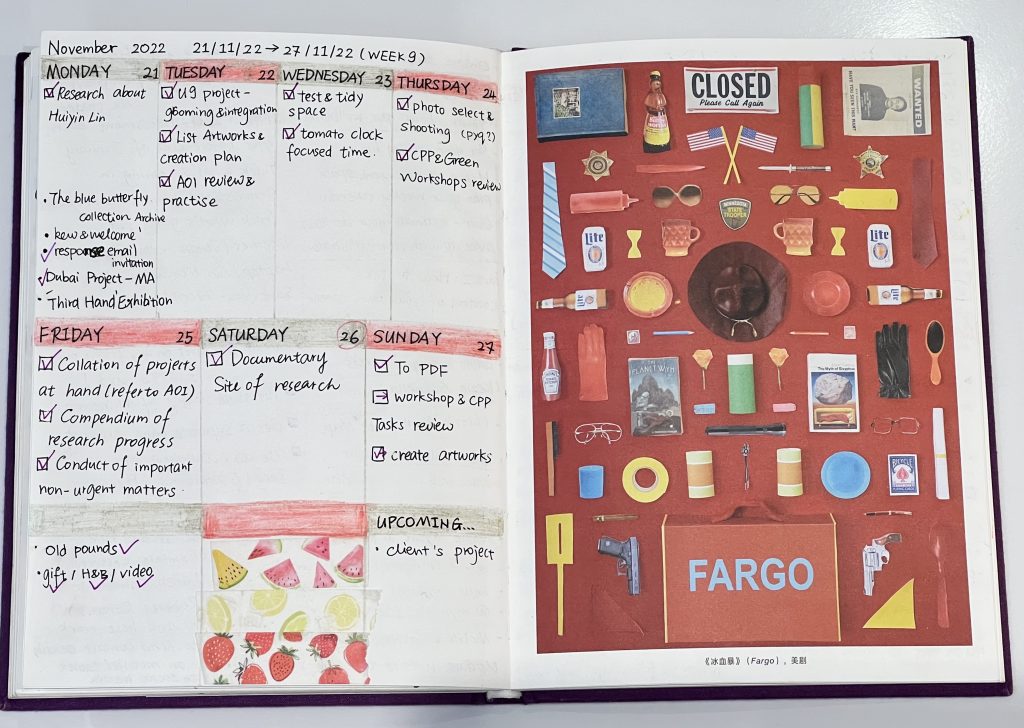 November 2022 21/11/22 → 27/11/22 (WEEK 9)
MONDAY 21
Research about
Huiyin Lin
The blue butterfly
collection Archive
kew & welcome'
response email
invitation
Dubai Project - MA
Third Hand Exhibition
TUESDAY 22
U9 project -
gooming & integration
List Artworks &
creation plan
AOI review &
practise
WEDNESDAY 23
test & tidy
space
tomato clock
focused time.
THURSDAY 24
photo select &
shooting (pxq?)
CPP & Green
Workshops review
FRIDAY 25
Collation of projects
at hand (refer to AOI)
Compendium of
research progress
Conduct of important
non-urgent matters.
SATURDAY 26
Documentary
Site of research
SUNDAY 27
To PDF
workshop & CPP
Tasks review
create artworks
old pounds
gift / H&B / video
UPCOMING...
client's project
CLOSED
Please Call Again
WANTED
HAVE YOU SEEN THIS MAN?
MINNESOTA
STATE
TROOPER
Lite
Lite
Lite
Lite
THE
PLANET WYH
The Myth of Sisyphus
BICYCLE
FARGO
《冰血暴》(Fargo),美剧